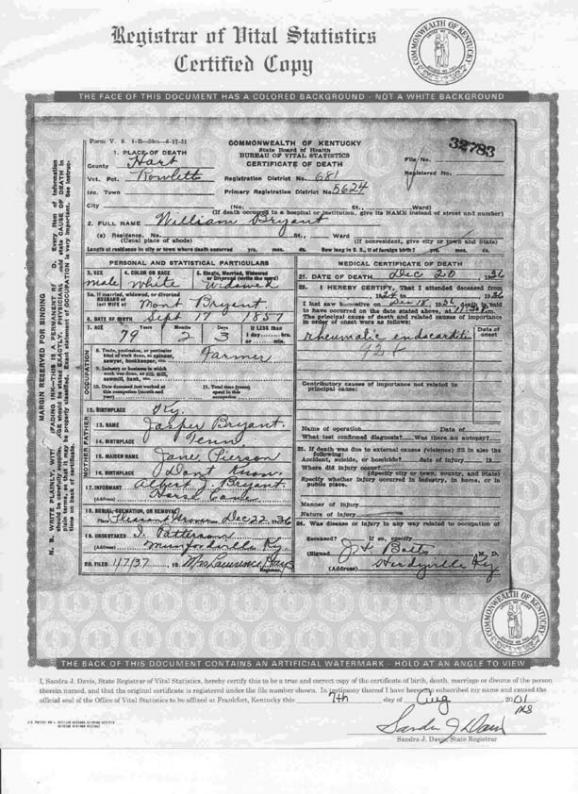 Registrar of Vital Statistics
Certified Copy
COMMONWEALTH OF KENTUCKY
THE FACE OF THIS DOCUMENT HAS A COLORED BACKGROUND - NOT A WHITE BACKGROUND
COMMONWEALTH OF KENTUCKY
State Board of Health
BUREAU OF VITAL STATISTICS
CERTIFICATE OF DEATH
32783
File No.
Registered No.
1. PLACE OF DEATH
County Hart
Vot. Pct. Rowletts
Registration District No. 681
Inc. Town
Primary Registration District No. 5624
City (No. St., Ward)
(If death occurred in a hospital or institution, give its NAME instead of street and number)
2. FULL NAME William Bryant
(a) Residence. No. St., Ward
(Usual place of abode) (If nonresident, give city or town and State)
Length of residence in city or town where death occurred yrs. mos. ds. How long in U. S., if of foreign birth? yrs. mos. ds.
PERSONAL AND STATISTICAL PARTICULARS
3. SEX 4. COLOR OR RACE 5. Single, Married, Widowed or Divorced (write the word)
male white
5a. If married, widowed, or divorced
HUSBAND of
(or) WIFE of Mont Bryant
6. DATE OF BIRTH Sept 17 1857
7. AGE Years Months Days If LESS than
79 2 3 1 day hrs.
or min.
OCCUPATION
8. Trade, profession, or particular kind of work done, as spinner, sawyer, bookkeeper, etc.
Farmer
9. Industry or business in which work was done, as silk mill, sawmill, bank, etc.
10. Date deceased last worked at this occupation (month and year)
11. Total time (years) spent in this occupation
12. BIRTHPLACE Ky.
FATHER
13. NAME Jasper Bryant.
14. BIRTHPLACE Tenn
MOTHER
15. MAIDEN NAME Jane Pierson
16. BIRTHPLACE Dont Know.
17. INFORMANT Albert J. Bryant.
(Address) Horse Cave
18. BURIAL, CREMATION, OR REMOVAL
Place Pleasant Grove Dec 22 36
19. UNDERTAKER Patterson
(Address) Munfordville Ky.
20. FILED 1/7/37 19 Mrs Lawrence
Registrar
MEDICAL CERTIFICATE OF DEATH
21. DATE OF DEATH Dec 20 1936
22. I HEREBY CERTIFY, That I attended deceased from
I last saw him alive on Dec 18 1936 death is said
to have occurred on the date stated above, at
The principal cause of death and related causes of importance
in order of onset were as follows:
Date of onset
rheumatic endocarditis
Contributory causes of importance not related to
principal cause:
Name of operation Date of
What test confirmed diagnosis? Was there an autopsy?
23. If death was due to external causes (violence) fill in also the
following:
Accident, suicide, or homicide? date of injury 19
Where did injury occur?
(Specify city or town, county, and State)
Specify whether injury occurred in industry, in home, or in
public place.
Manner of injury
Nature of injury
24. Was disease or injury in any way related to occupation of
deceased? If so, specify
(Signed) M. D.
(Address) Hardyville Ky
MARGIN RESERVED FOR BINDING
COMMONWEALTH OF KENTUCKY
THE BACK OF THIS DOCUMENT CONTAINS AN ARTIFICIAL WATERMARK - HOLD AT AN ANGLE TO VIEW
I, Sandra J. Davis, State Registrar of Vital Statistics, hereby certify this to be a true and correct copy of the certificate of birth, death, marriage or divorce of the person
therein named, and that the original certificate is registered under the file number shown. In testimony thereof I have hereunto subscribed my name and caused the
official seal of the Office of Vital Statistics to be affixed at Frankfort, Kentucky this 7th day of Aug 2001
Sandra J Davis
Sandra J. Davis, State Registrar